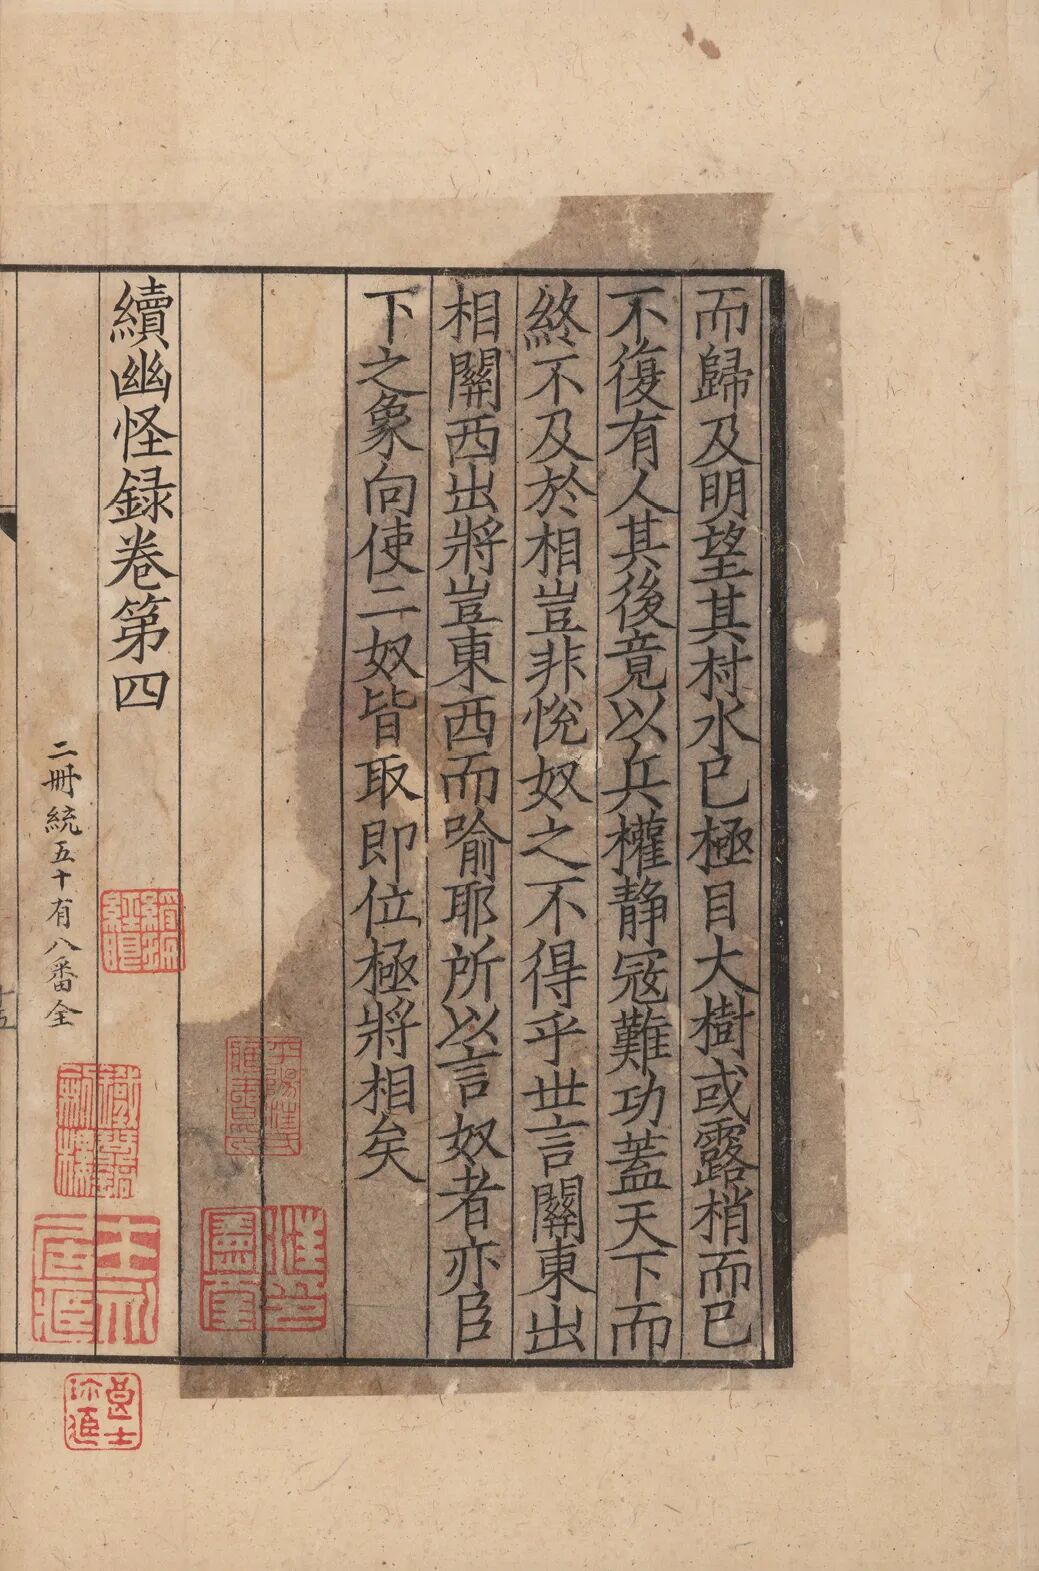 而歸及明望其村水已極目大樹或露梢而已
不復有人其後竟以兵權静冦難功蓋天下而
終不及於相豈非恱奴之不得乎世言關東出
相關西出將豈東西而喻耶所以言奴者亦臣
下之象向使二奴皆取即位極將相矣
續幽怪録卷第四
二冊統五十有八番全